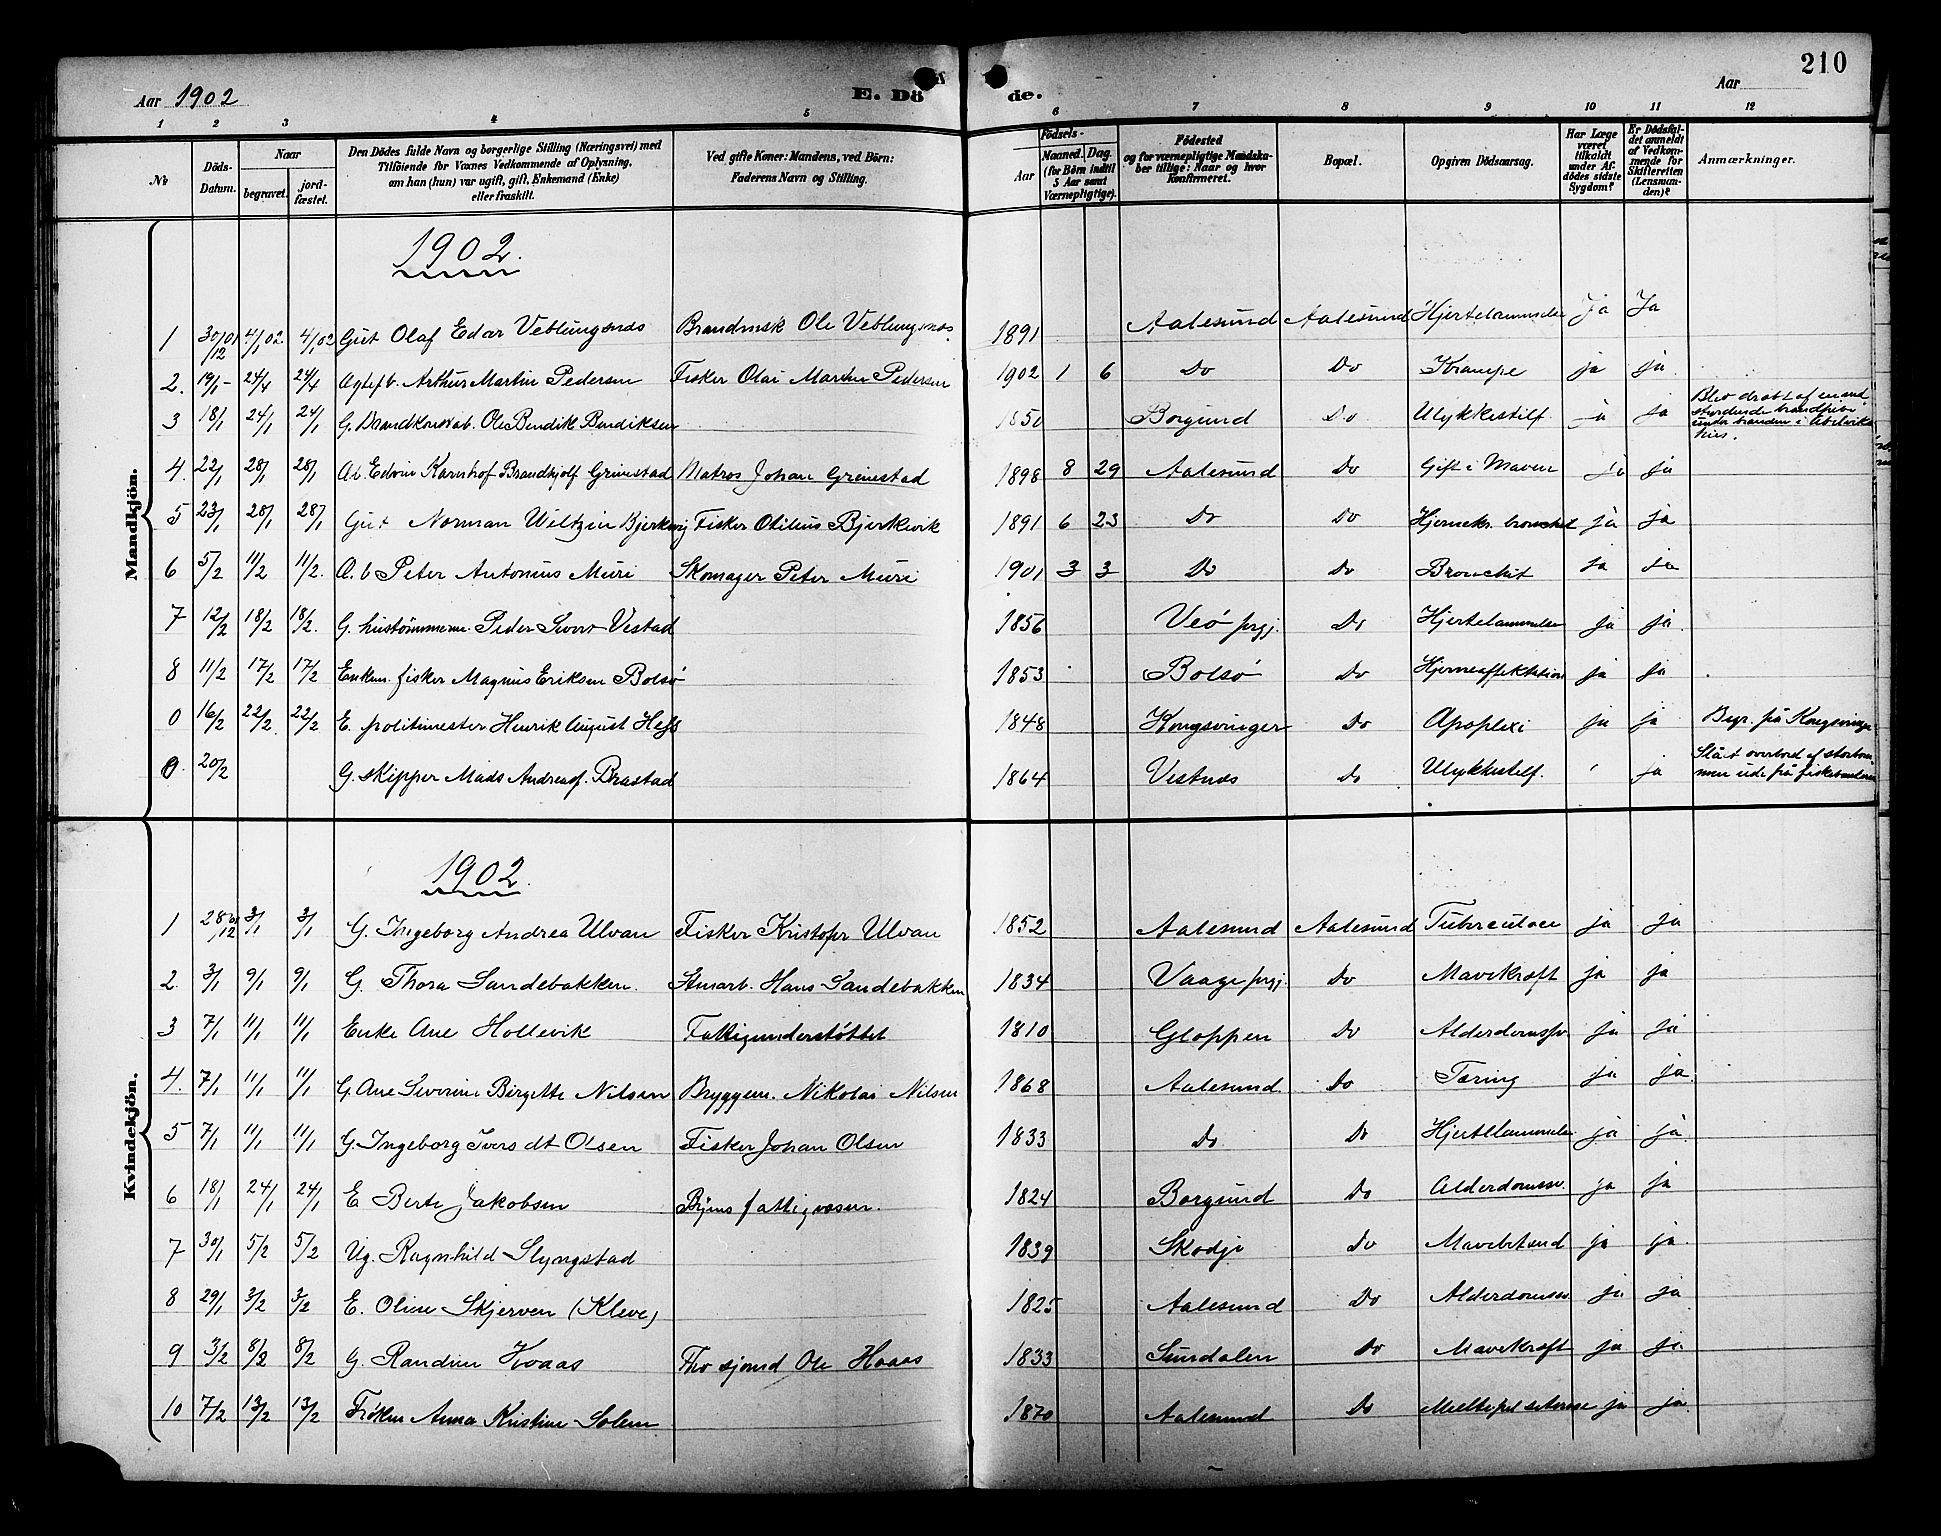 210
Aar 1902
E. Dö de.
Aar
1 2 3 4 5 6 7 8 9 10 11 12
No
Döds-Datum.
Naar
begravet.
jord-fæstet.
Den Dödes fulde Navn og borgerlige Stilling (Næringsvei) med
Tilföiende for Voxnes Vedkommende af Oplysning,
om han (hun) var ugift, gift, Enkemand (Enke)
eller fraskilt.
Ved gifte Koner: Mandens, ved Börn:
Faderens Navn og Stilling.
Aar
Födsels-
Maaned. Dag.
(for Börn indtil
5 Aar samt
Værnepligtige).
Födested
og for værnepligtige Mandska-
ber tillige: Naar og hvor
konfirmeret.
Bopæl.
Opgiven Dödsaarsag.
Har Læge
været
tilkaldt
under Af-
dödes sidste
Sygdom?
Er Dödsfal-
det anmeldt
af Vedkom-
mende for
Skifteretten
(Lensman-
den)?
Anmærkninger.
Mandkjön.
1902.
1 30/12 01 4/1 02 4/1 02 Gut Olaf Edar Veblungsnæs Brandmsk Ole Veblungsnæs. 1891 Aalesund Aalesund Hjertelammelse Ja Ja
2. 19/1 24/1 24/1 Arthur Martin Pedersen Fisker Olai Martin Pedersen 1902 1 6 Do Do Krampe ja ja.
3 18/1 24/1 24/1 G. Ole Bendik Bendiksen 1850 Borgund Do Ulykkestilf. ja ja Blev dræbt af en
brandpibe
under branden i
4. 22/1 28/1 28/1 Edvin Grimstad Matros Johan Grimstad 1898 8 29 Aalesund Do Gift i Maven ja ja
5 23/1 28/1 28/1 Gut Norman Weltzin Bjerkevig Fisker Otilius Bjerkevik 1891 6 23 Do Do ja ja
6 5/2 11/2 11/2. Æ. b Peter Antonius Muri Skomager Peter Muri 1901 3 3 Do Do Bronchit ja ja
7 12/2 18/2 18/2. G. Peder Sivert Vestad 1856 Veö prgj. Do Hjertelammelse ja ja.
8 11/2 17/2 17/2 Enkem. fisker Magnus Eriksen Bolsö 1853 Bolsö Do Hjerneaffektation ja ja
0 16/2 22/2 22/2 E. politimester Henrik August Hess 1848 Kongsvinger Do Apoplexi ja ja Begr. på Kongsvinger
0. 20/2 G. skipper Mads Brastad 1864 Vestnæs do Ulykkestilf. ja Slået overbord af
ude på
Kvindekjön.
1902.
1 28/12 3/1 3/1 G. Ingeborg Andrea Ulvan Fisker Kristofer Ulvan 1852 Aalesund Aalesund Tuberculose ja ja
2. 3/1 9/1 9/1 G. Thora Sandebakken. Hans Sandebakken 1834 Vaage prgj. Do Mavekræft ja ja
3 7/1 11/1 11/1 Enke Ane Hollevik Fattigunderstöttet 1810 Gloppen Do ja ja
4. 7/1 11/1 11/1 G. Ane Severine Birgitte Nilsen Bryggem. Nikolai Nilsen 1868 Aalesund. Do Tæring ja ja.
5 7/1 11/1 11/1 G. Ingeborg Ivers dt Olsen Fisker Johan Olsen 1833 Do Do Hjertelammelse ja ja.
6 18/1 24/1 24/1 E Berte Jakobsen Byens fattigvæsen. 1824 Borgund Do Alderdomssv. ja ja
7 30/1 5/2 5/2 Ug. Ragnhild Slyngstad 1839 Skodje Do ja ja.
8 29/1 3/2 3/2 E. Oline Skjerven (Kleve) 1825 Aalesund Do Alderdomssv ja ja
9 3/2 8/2 8/2 G. Randine Hoaas Ole Hoaas 1833 Sundalen Do Mavekræft ja ja
10 7/2 13/2 13/2 Fröken Anna Kristine Solem 1870 Aalesund Do ja ja.